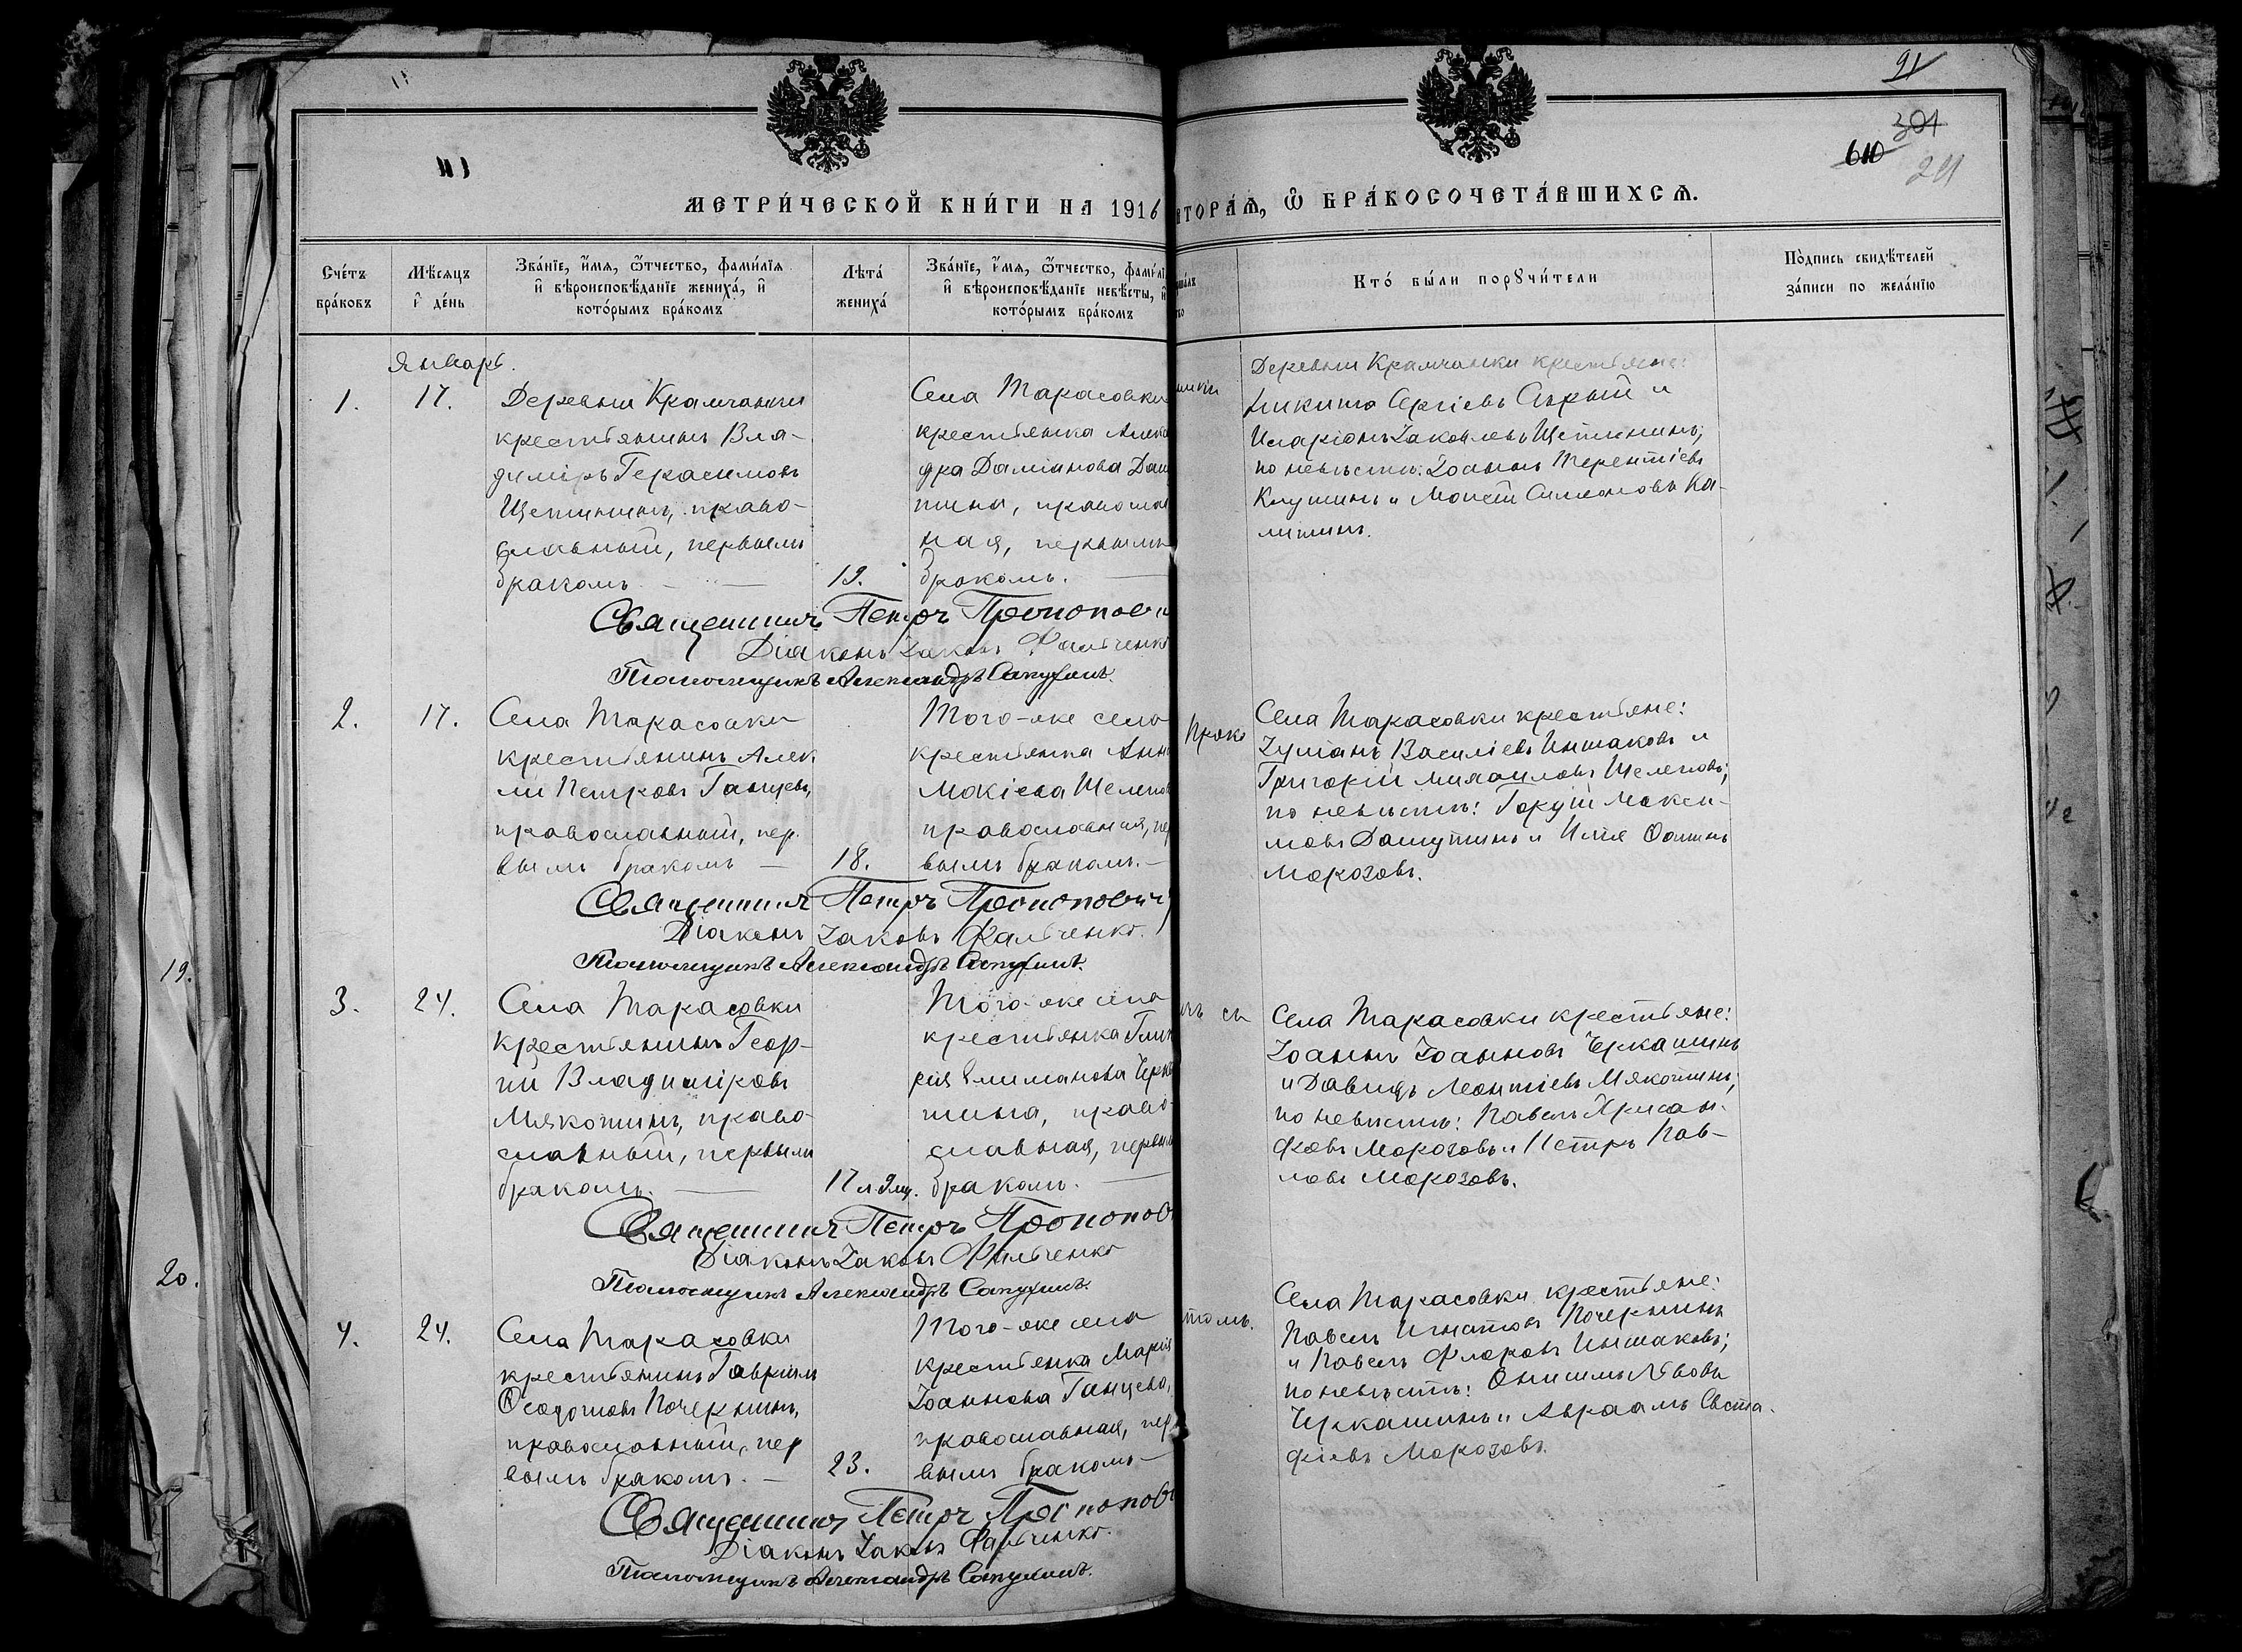 91
301
610
211
МЕТРИ́ЧЕСКОЙ КНИ́ГИ НА 1916
ВТОРА́Ѧ, Ѽ БРА́КОСОЧЕТА́ВШИХСѦ.
Сче́тъ бра́ковъ
Мѣ́сяцъ и҆ де́нь
Зва́нїе, и҆́мя, ѻ҆́тчество, фами́лїя
и҆ вѣроисповѣ́данїе жениха́, и҆
кото́рымъ бра́комъ
Лѣта́ жениха́
Зва́нїе, и҆́мя, ѻ҆́тчество, фами́лї
и҆ вѣроисповѣ́данїе невѣ́сты, и҆
кото́рымъ бра́комъ
Кто́ бы́ли порꙋчи́тели
По́дпись свидѣ́телей
за́писи по жела́нїю
Январь.
1.
17.
Деревни Крамчанки
крестьянинъ Вла-
диміръ Герасимовъ
Щетининъ, право-
славный, первымъ
бракомъ
19.
Села Тарасовки
крестьянка Алекса
дра Даміанова Даш
тина, правосла
ная, первымъ
бракомъ.
Деревни Крамчанки крестьяне:
Никита Сергіевъ Сѣрый и
Иларіонъ Іаковлевъ Щетининъ;
по невѣстѣ: Іоаннъ Терентіевъ
Клушинъ и Моисей Симеоновъ Ка-
лининъ.
Священникъ Петръ Прокопови
Діаконъ Іаковъ Фальченко
Псаломщикъ Александръ Сапухинъ.
2.
17.
Села Тарасовки
крестьянинъ Алек
ѣй Петровъ Ганцевъ,
православный, пер-
вымъ бракомъ
18.
Того-же села
крестьянка Анн
Мокіева Шелепов
православная, пе
вымъ бракомъ.
Проко
Села Тарасовки крестьяне:
Іуліанъ Василіевъ Иншаковъ и
Григорій Михаиловъ Шелеповъ;
по невѣстѣ: Гордій Макси-
мовъ Дашутинъ и Илія Фотинъ
Морозовъ.
Священникъ Петръ Прокопович
Діаконъ Іаковъ Фальченко.
Псаломщикъ Александръ Сапухинъ.
3.
24.
Села Тарасовки
крестьянинъ Геор-
гій Владиміровъ
Мякотинъ, право-
славный, первымъ
бракомъ.
17 л. 9 мц.
Того-же села
крестьянка Глик
рія Климанова Черка
шина, право-
славная, первы
бракомъ.
Села Тарасовки крестьяне:
Іоаннъ Іоанновъ Черкашинъ
и Давидъ Леонтіевъ Мякотинъ;
по невѣстѣ: Павелъ Хрисан-
фовъ Морозовъ и Петръ Пав-
ловъ Морозовъ.
Священникъ Петръ Прокопов
Діаконъ Іаковъ Фальченко
Псаломщикъ Александръ Сапухинъ.
4.
24.
Села Тарасовки
крестьянинъ Гавріилъ
Ѳеодотовъ Почернинъ,
православный, пер
вымъ бракомъ.
23.
Того-же села
крестьянка Марія
Іоаннова Ганцева,
православная, пер
вымъ бракомъ
Села Тарасовки крестьяне:
Павелъ Игнатовъ Почернинъ
и Павелъ Флоровъ Иншаковъ;
по невѣстѣ: Онисимъ Львовъ
Черкашинъ и Авраамъ Евста-
фіевъ Морозовъ.
Священникъ Петръ Прокопов
Діаконъ Іаковъ Фальченко.
Псаломщикъ Александръ Сапухинъ.
19.
20.